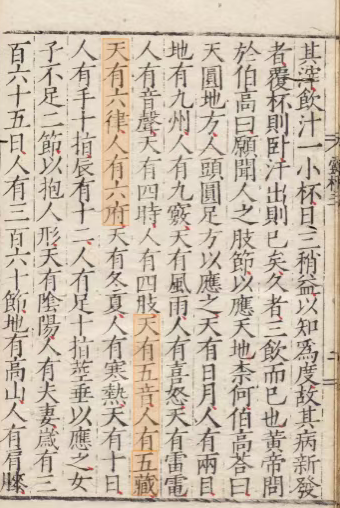 其滓飲汁一小杯日三稍益以知爲度故其病新發
者覆杯則臥汗出則已矣久者三飲而已也黃帝問
於伯高曰願聞人之肢節以應天地柰何伯高荅曰
天圓地方人頭圓足方以應之天有日月人有兩目
地有九州人有九竅天有風雨人有喜怒天有雷電
人有音聲天有四時人有四肢天有五音人有五藏
天有六律人有六府天有冬夏人有寒熱天有十日
人有手十指辰有十二人有足十指莖垂以應之女
子不足二節以抱人形天有陰陽人有夫妻歲有三
百六十五日人有三百六十節地有高山人有肩膝